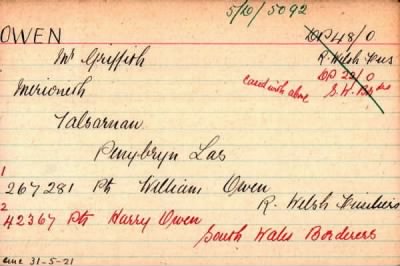 5/O/5092
OWEN
DP 48/O
Mr Griffith
R. Welsh Fus
DP 22/O
Merioneth
Card with above
S. W. Bdrs
Talsarnau
Penybryn Las
1
267281 Pte William Owen
R. Welsh Fusiliers
2
42367 Pte Harry Owen
South Wales Borderers
31-5-21